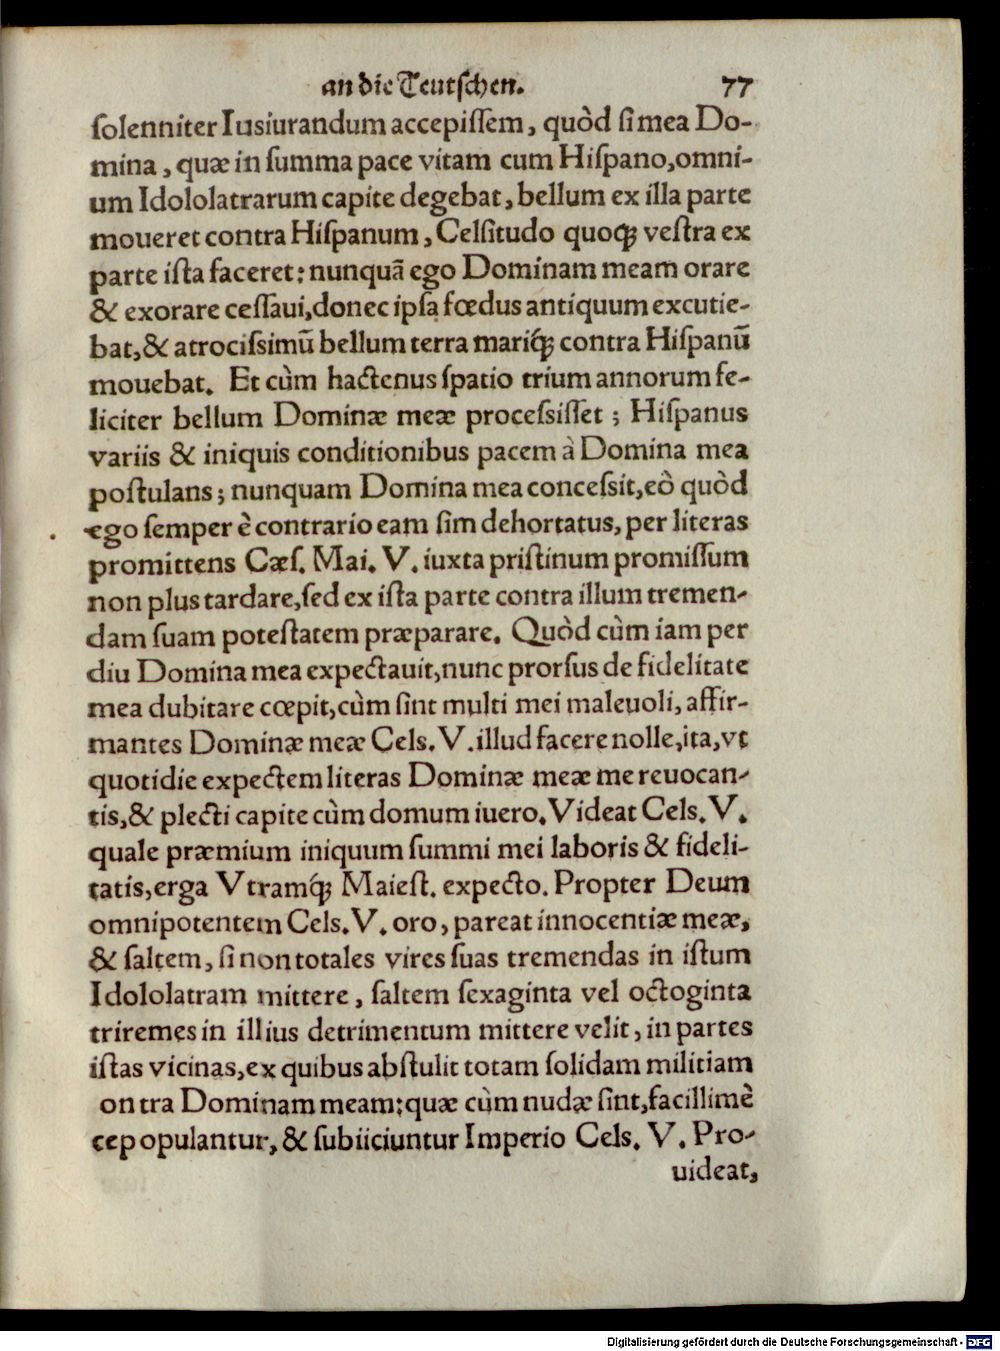 an die Teutschen. 77
ſolenniter Iusiurandum accepiſſem, quòd ſi mea Do-
mina, quæ in ſumma pace vitam cum Hiſpano, omni-
um Idololatrarum capite degebat, bellum ex illa parte
moueret contra Hiſpanum, Celſitudo quoqꝫ veſtra ex
parte iſta faceret: nunquā ego Dominam meam orare
& exorare ceſſaui, donec ipſa fœdus antiquum excutie-
bat, & atrociſsimū bellum terra mariq́ꝫ contra Hiſpanū
mouebat. Et cùm hactenus ſpatio trium annorum fe-
liciter bellum Dominæ meæ proceſsiſſet; Hiſpanus
variis & iniquis conditionibus pacem à Domina mea
poſtulans; nunquam Domina mea conceſsit, eò quòd
ego ſemper è contrario eam ſim dehortatus, per literas
promittens Cæſ. Mai. V. iuxta priſtinum promiſſum
non plus tardare, ſed ex iſta parte contra illum tremen-
dam ſuam poteſtatem præparare. Quòd cùm iam per
diu Domina mea expectauit, nunc prorſus de fidelitate
mea dubitare cœpit, cùm ſint multi mei maleuoli, affir-
mantes Dominæ meæ Cels. V. illud facere nolle, ita, vt
quotidie expectem literas Dominæ meæ me reuocan-
tis, & plecti capite cùm domum iuero. Videat Cels. V.
quale præmium iniquum ſummi mei laboris & fideli-
tatis, erga Vtramq́ꝫ Maieſt. expecto. Propter Deum
omnipotentem Cels. V. oro, pareat innocentiæ meæ,
& ſaltem, ſi non totales vires ſuas tremendas in iſtum
Idololatram mittere, ſaltem ſexaginta vel octoginta
triremes in illius detrimentum mittere velit, in partes
iſtas vicinas, ex quibus abſtulit totam ſolidam militiam
on tra Dominam meam: quæ cùm nudæ ſint, facillimè
cep opulantur, & ſubiiciuntur Imperio Cels. V. Pro-
uideat,
Digitalisierung gefördert durch die Deutsche Forschungsgemeinschaft - DFG